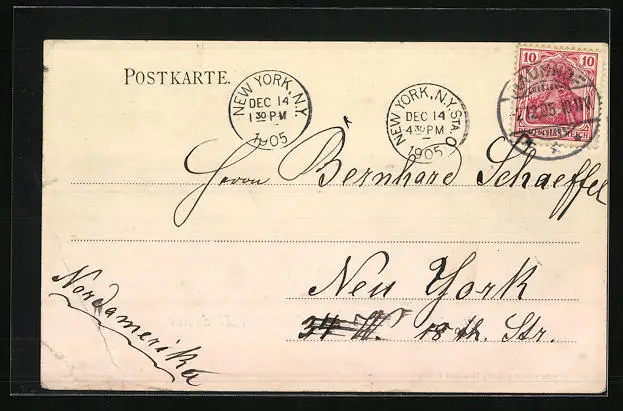 POSTKARTE.
NEW YORK, N.Y.
DEC 14
1 30 PM
1905
NEW YORK, N.Y. STA. O
DEC 14
4 30 PM
1905
10 10
DEUTSCHES REICH
Herrn Bernhard Schaeffel
New York
34 W. 18 th. Str.
Nordamerika